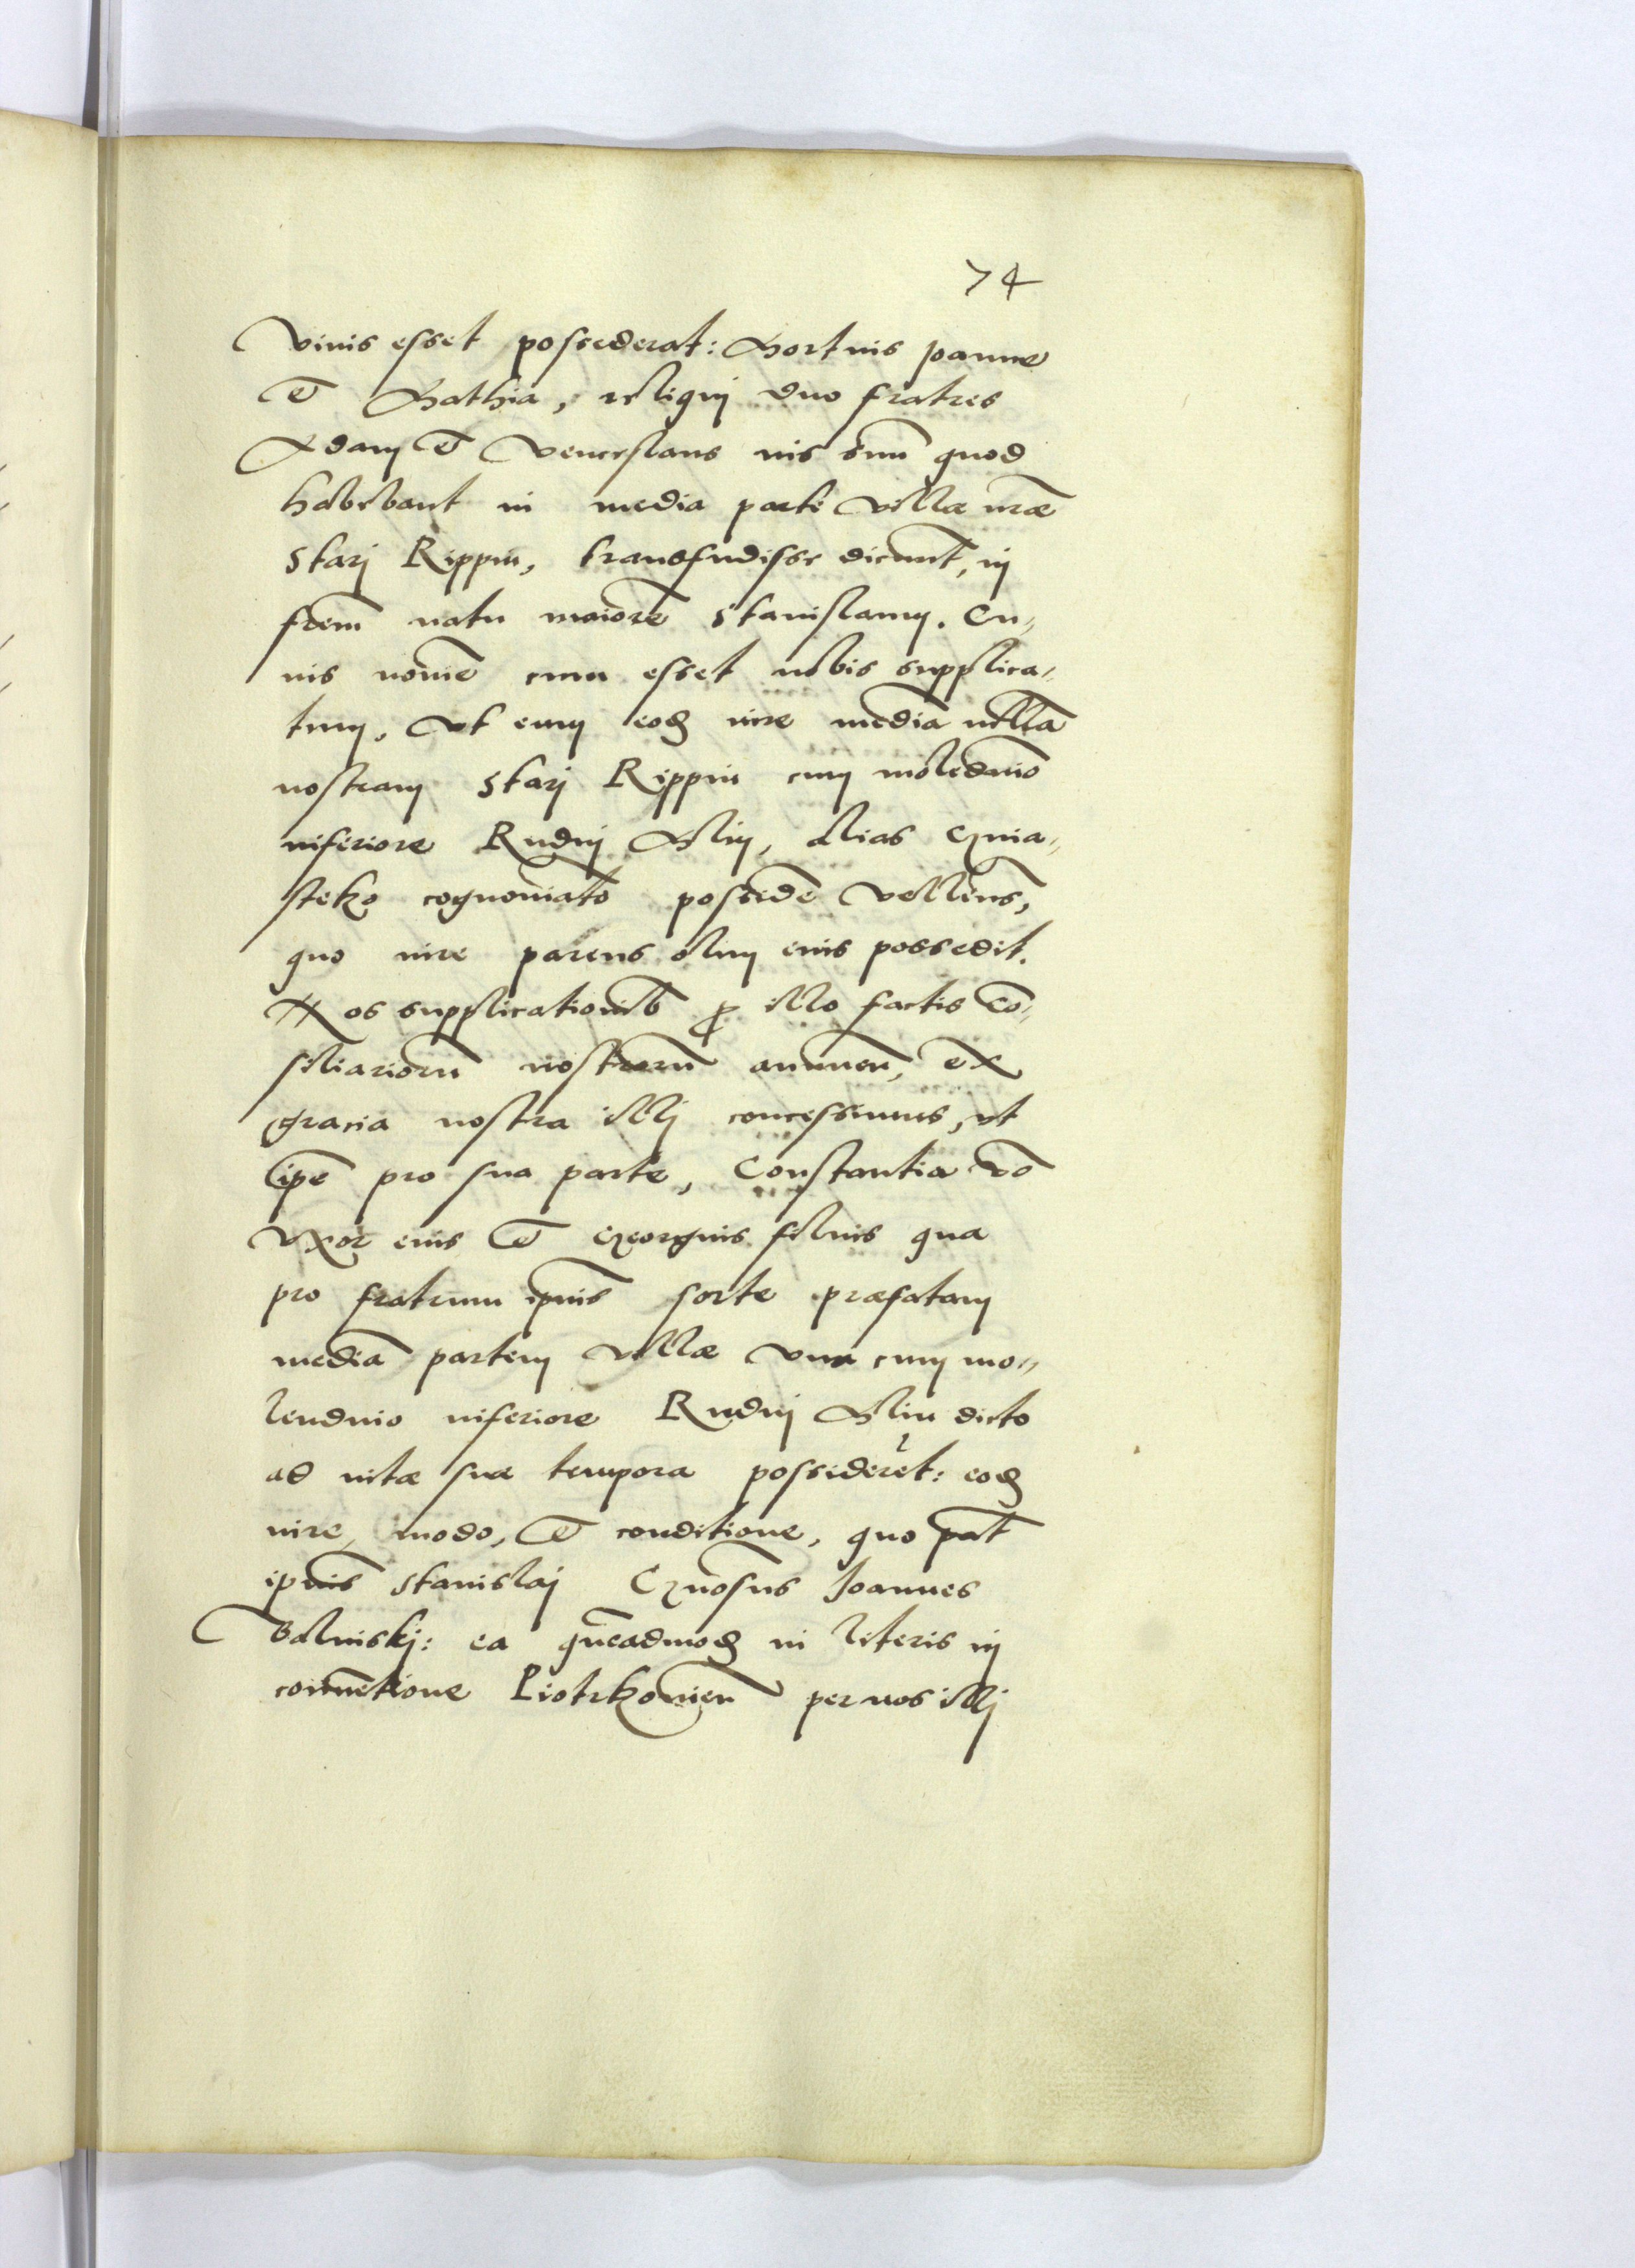 74
viuis esset possederat: Mortuis Joanne
et Mathia, reliqui duo fratres
Adam et Venceslaus ius suũ quod
habebant in media parte villæ nræ
Stari Rippin, transfudisse dicunt, in
frem̃ natu maiorẽ Stanislaum. Cu„
ius noĩe cum esset nobis supplica„
tum, vt eum eodẽ iure mediã villã
nostram Stari Rippin cum molẽdino
inferiore Rudni Mlin, alias
steko cognoĩato possidẽ vellem̃,
quo iure parens olim eius possedit.
Nos supplicationib pro illo factis Cõ„
siliariorũ nostrorũ annueñ, ex
gracia nostra illi concessimus, vt
ipẽ pro sua parte, Constantia võ
vxor eius et Georgius filius qua
pro fratrum ipĩus sorte præfatam
mediã partem villæ vna cum mo„
lendino inferiore Rudni Mlin dicto
ad vitæ suæ tempora possiderẽt: eodẽ
iure, modo, et conditione, quo pat̃
ipĩus Stanislai Gnõsus Joannes
ea quẽadmodũ in literis in
conuẽtione Piotrkouieñ per nos illi